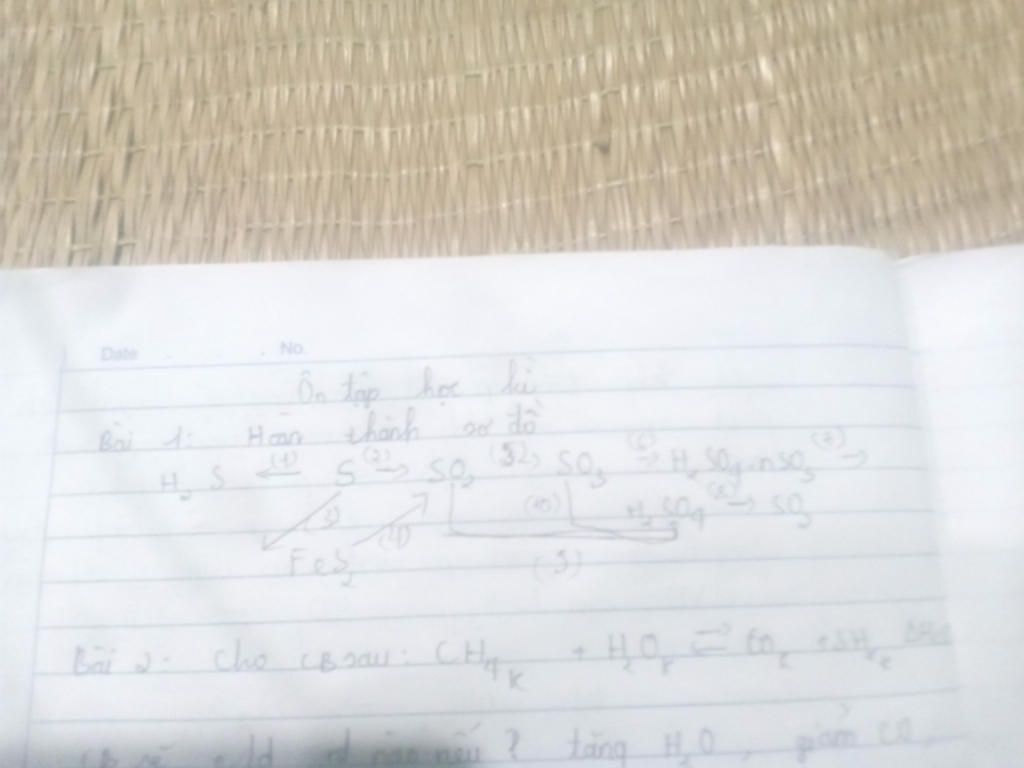 Date No.
Ôn tập học kì
Bài 1: Hoàn thành sơ đồ
H2S ←(1) S (2)→ SO2 (5)→ SO3 (6)→ H2SO4.nSO3 (7)→
(3) (4) (10) H2SO4 (8)→ SO2
FeS2 (9)
Bài 2: Cho CB sau: CH4 K + H2O K ⇌ CO K + 3H2 K
? tăng H2O, giảm CO,